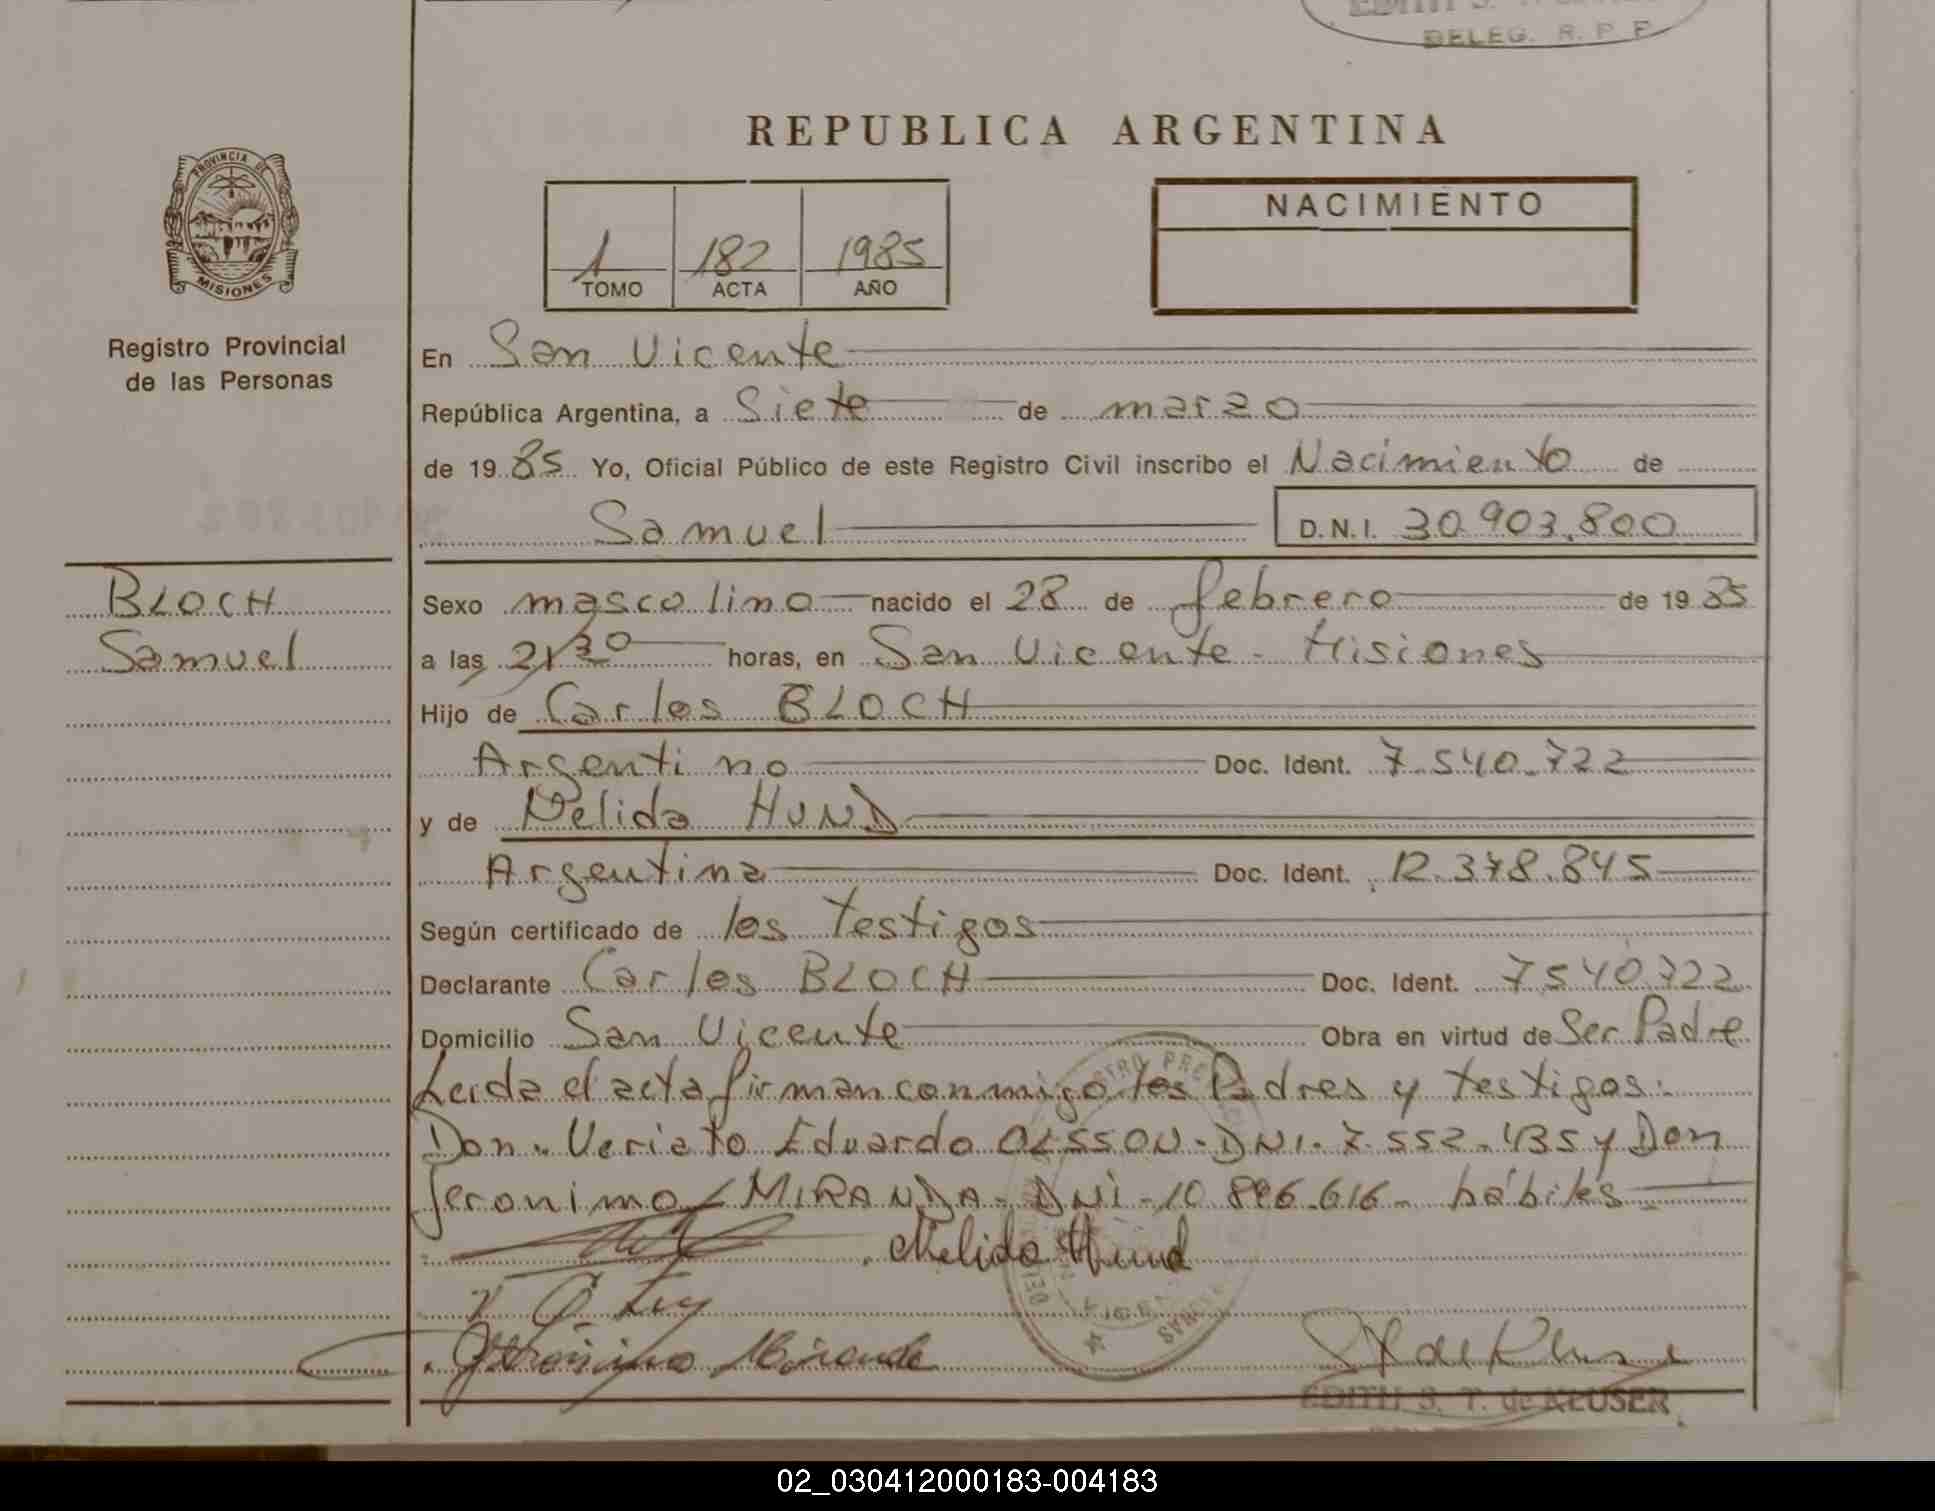 DELEG. R. P. P.
REPUBLICA ARGENTINA
PROVINCIA DE
MISIONES
Registro Provincial
de las Personas
1 182 1985
TOMO ACTA AÑO
NACIMIENTO
En San Vicente
República Argentina, a Siete de marzo
de 19 85 Yo, Oficial Público de este Registro Civil inscribo el Nacimiento de
Samuel D.N.I. 30.903.800
BLOCH
Samuel
Sexo mascolino nacido el 28 de febrero de 19 85
a las 21,30 horas, en San Vicente - Misiones
Hijo de Carlos BLOCH
Argentino Doc. Ident. 7.540.722
y de Nelida HUND
Argentina Doc. Ident. 12.378.845
Según certificado de los testigos
Declarante Carlos BLOCH Doc. Ident. 7540722
Domicilio San Vicente Obra en virtud de Ser Padre
Leida el acta firman conmigo los Padres y testigos:
Don Eduardo OLSSON - DNI. 7.552.435 y Don
Jeronimo MIRANDA - DNI - 10.896.616 - hábiles
Nelida Hund
Jeronimo Miranda
EDITH S. T. de KLUSER
02_030412000183-004183